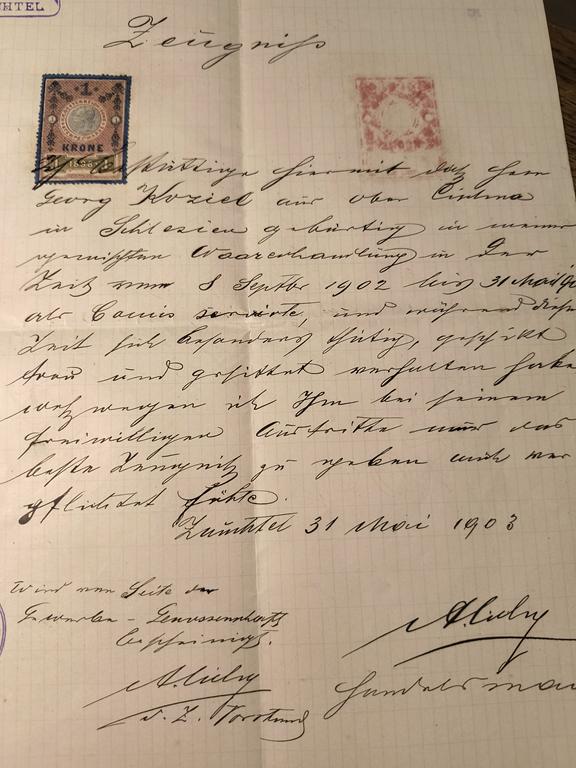 CHTEL
Zeugniß
1
KRONE
1898
bestättige hiermit daß Herr
Georg Koziel aus Ober
in Schlesien gebürtig in meiner
gemischten Waarenhandlung in der
Zeit vom 8 Septbr 1902 bis 31 Mai
als Comis servirte, und während dieser
Zeit sich besonders thätig, geschikt
treu und gesittet verhalten habe
weßwegen ich Ihm bei seinem
freiwilligen Austritte nur das
beste Zeugniß zu geben mich ver
pflichtet fühle.
Zauchtel 31 Mai 1903
Wird von Seite der
Gewerbe - Genossenschaft
bescheinigt.
d. Z. Vorstand